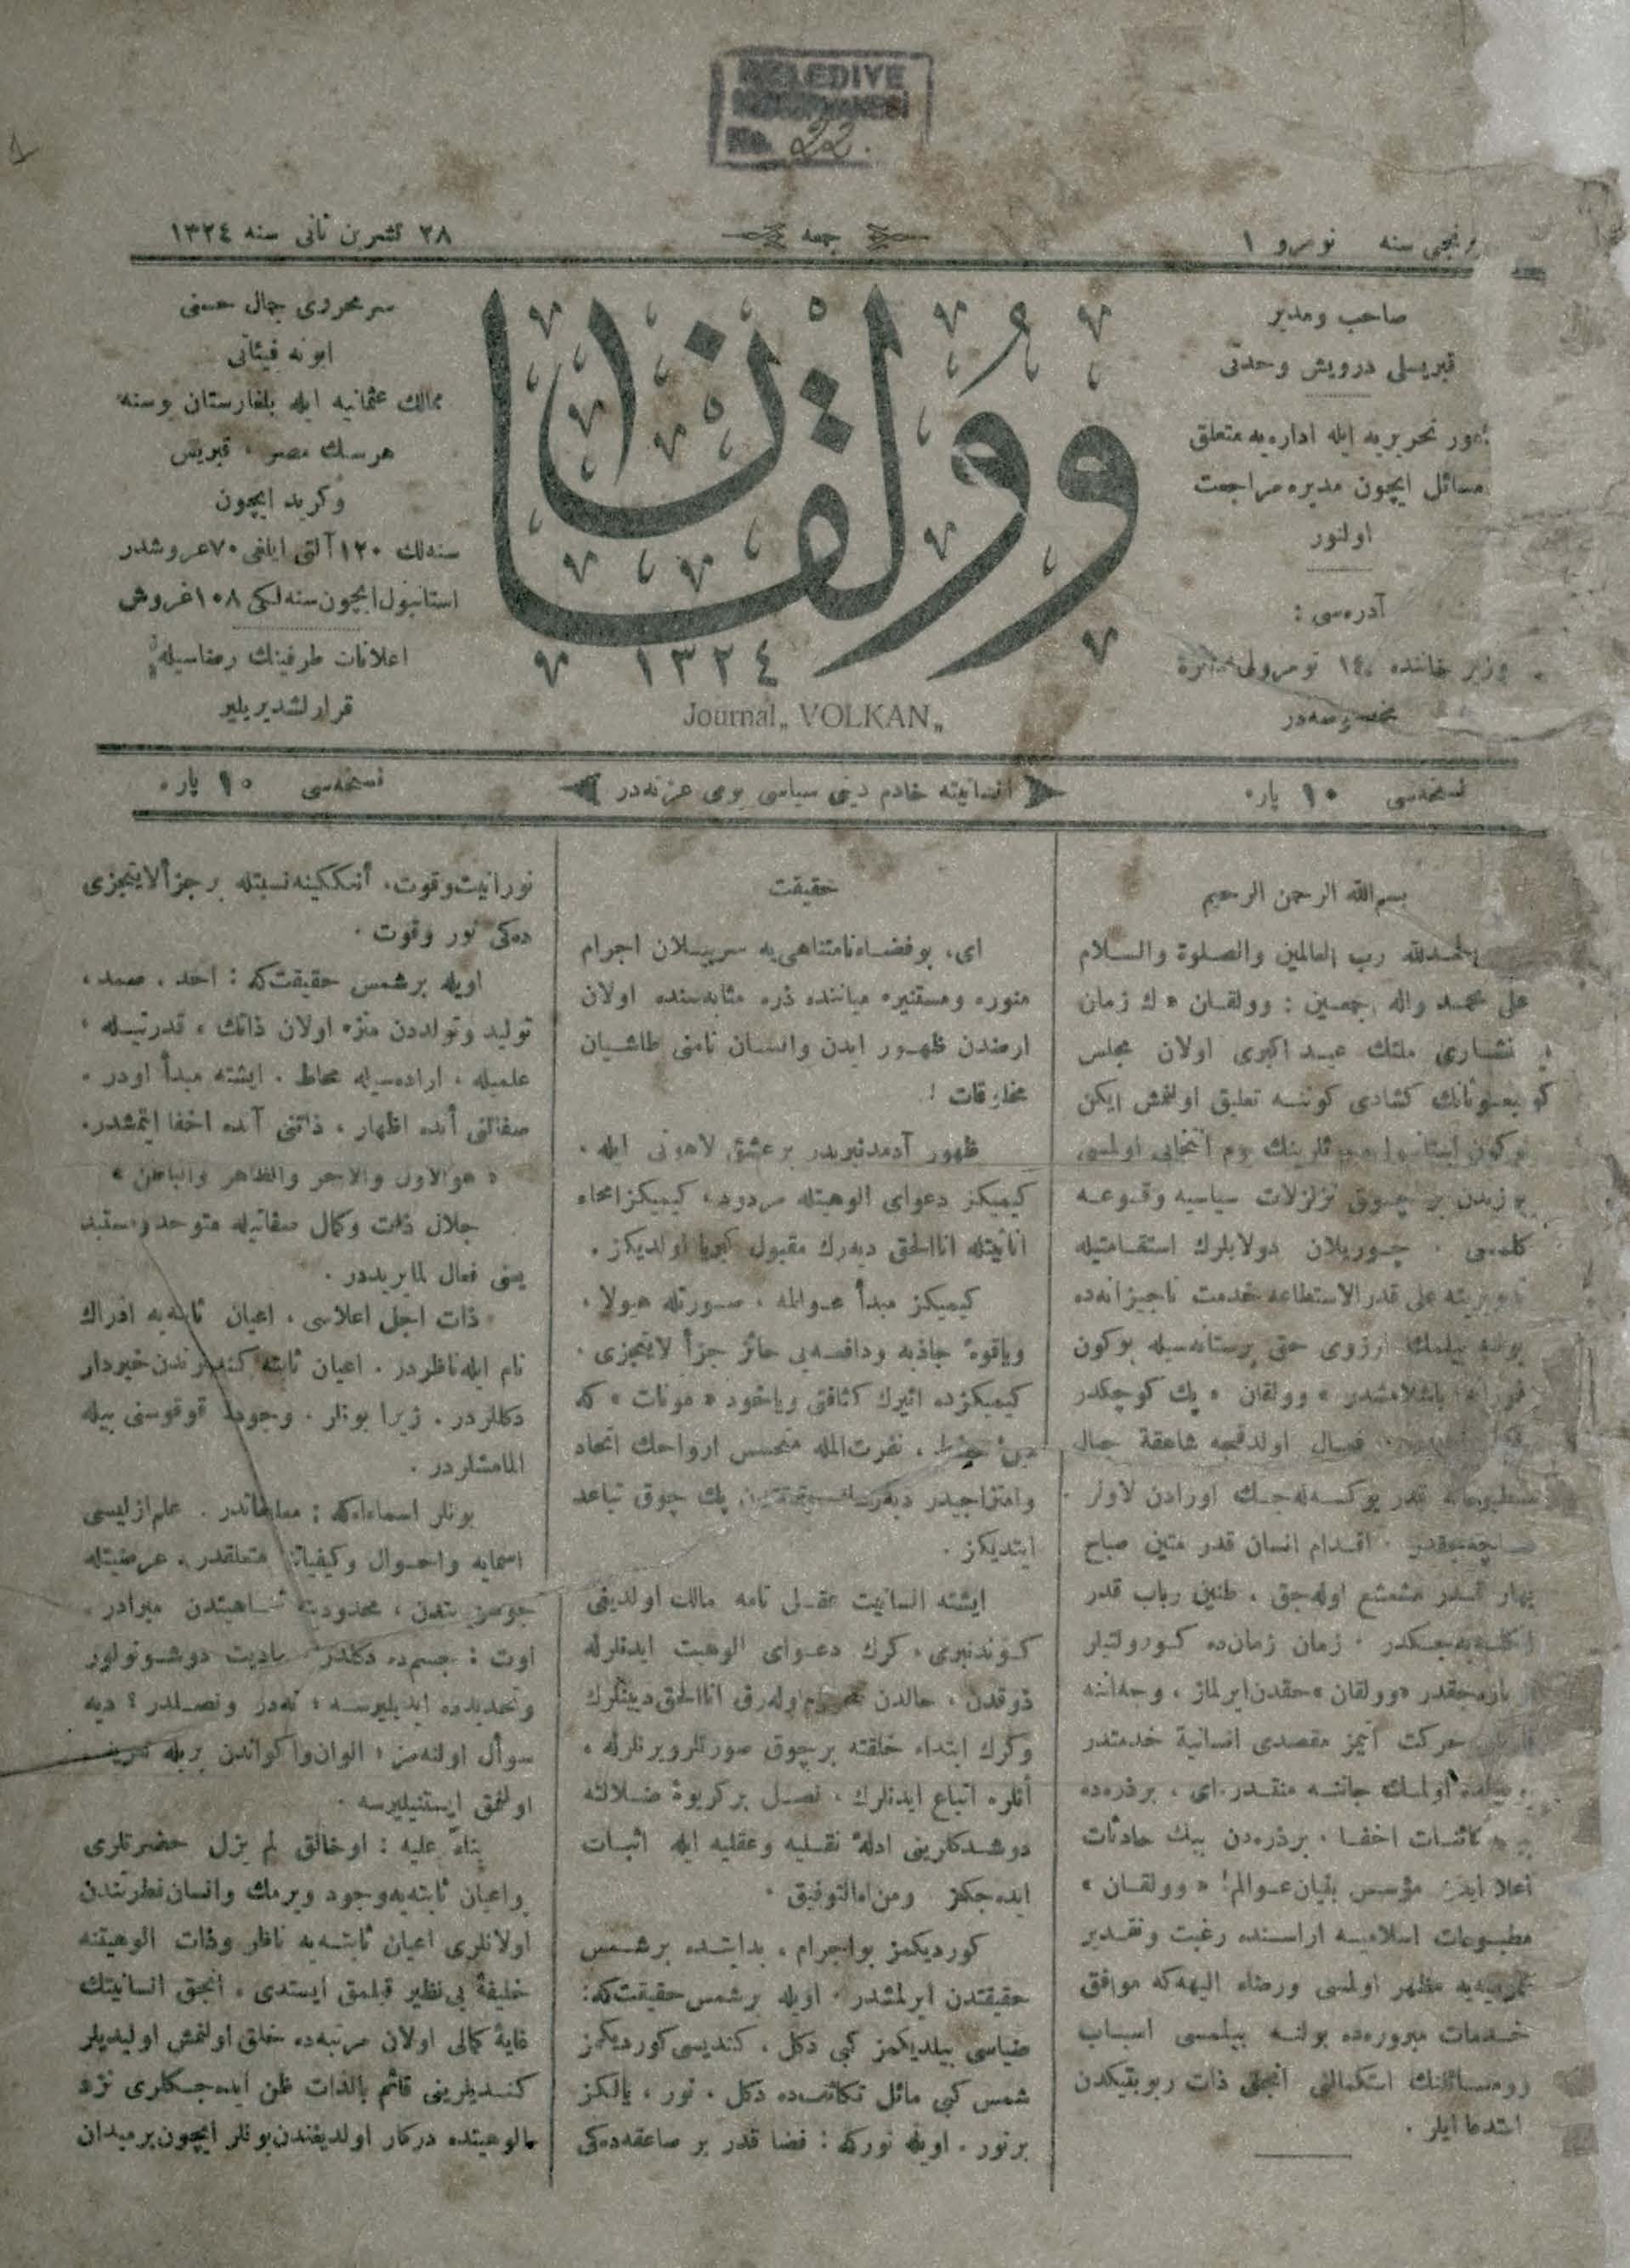 BELEDİYE
No. 22.
برنجی سنه نومرو ۱
جمعه
۲۸ تشرین ثانی سنه ۱۳۲٤
صاحب ومدیر
قبریسلی درویش وحدتی
امور تحریریه ایله اداره‌یه متعلق
مسائل ایچون مدیره مراجعت
اولنور
آدره‌سی :
وزیر خاننده نومرولی دائرهٔ
مخصوصه‌در
وولقان
۱۳۲٤
Journal „ VOLKAN „
سر محرری جمال حسنی
ابونه فیئاتی
ممالك عثمانیه ایله بلغارستان بوسنه
هرسك مصر ، قبریس
وكرید ایچون
سنه‌لك ۱۲۰ آلتی ایلغی ۷۰ غروشدر
استانبول ایچون سنه‌لكی ۱۰۸ غروش
اعلانات طرفینك رضاسیله
قرارلشدیریلیر
نسخه‌سی ۱۰ پاره
انسانیته خادم دینی سیاسی یومی غزته‌در
نسخه‌سی ۱۰ پاره
بسم‌الله الرحمن الرحیم
الحمدلله رب العالمین والصلوة والسلام
علی محمد واله اجمعین : وولقان » ك زمان
نشاری ملتك عید اكبری اولان مجلس
مبعوثانك كشادی كوننه تعلیق اولنمش ایكن
بوكون انتخابی اولمسی
چوق تزلزلات سیاسیه وقوعه
كلمسی . چوریلان دولابلرك استقامتیله
علی قدرالاستطاعه خدمت ناچیزانه‌ده
بوله بیلمك ارزوی حق پرستانه‌سیله بوكون
باشلامشدر » وولقان » پك كوچكدر
فعال اولدقجه شاهقهٔ جبال
قدر یوكسله‌جك اورادن لاولر
صاچه‌جقدر . اقدام انسان قدر متین صباح
بهار قدر مشعشع اوله‌جق ، طنین رباب قدر
زمان زمان‌ده كورولتیلر
«وولقان» حقدن ایرلماز ، وجدانه
حركت ایتمز مقصدی انسانیة خدمتدر
اولمك جاننه منتدر . ای ، بر ذره‌ده
كائنات اخفا ، بر ذره‌دن بیك حادثات
اعلا ایدن مؤسس بنیان عوالم! « وولقان »
مطبوعات اسلامیه اراسنده رغبت وتقدیر
مظهر اولمسی ورضاء الهیه‌كه موافق
خدمات مبروره‌ده بولنه بیلمسی اسباب
ووسائلنك استكمالنی انجق ذات ربوبیتكدن
استدعا ایلر .
حقیقت
ای، بو فضاء نامتناهی‌یه سرپیلان اجرام
منوره ومستنیره میاننده ذره مثابه‌سنده اولان
ارضدن ظهور ایدن وانسان نامنی طاشییان
مخلوقات !
ظهور آدمدنبریدر بر عشق لاهوتی ایله ،
كیمیكز دعوای الوهیتله مردود، كیمیكز امحاء
انانیتله اناالحق دیه‌رك مقبول كبریا اولدیكز .
كیمیكز مبدأ عوالمه ، صورتله هیولا ،
ویاقوهٔ جاذبه ودافعه‌یی حائز جزأ لایتجزی ،
كیمیكزده اثیرك كثافتی ویاخود « مونات » كه
نفرت‌المله متحسس ارواحك اتحاد
وامتزاجیدر دیه‌رك پك چوق تباعد
ایتدیكز .
ایشته انسانیت عقل تامه مالك اولدیغی
كوندنبری ، كرك دعوای الوهیت ایدنلرله
ذوقدن ، حالدن محروم اوله‌رق اناالحق دیینلرك
وكرك ابتداء خلقته بر چوق صورتلر ویرنلرله ،
أنلره اتباع ایدنلرك ، نصل بر كریوهٔ ضلالته
دوشدكلرینی ادلهٔ نقلیه وعقلیه ایله اثبات
ایده‌جكز ومن‌الله‌التوفیق .
كوردیكمز بو اجرام ، بدایتده بر شمس
حقیقتدن ایرلمشدر . اویله بر شمس حقیقت‌كه:
ضیاسی بیلدیكمز كبی دكل ، كندیسی كوردیكمز
شمس كبی مائل تكاثفده دكل ، نور ، یالكز
بر نور . اویله نوركه : فضا قدر بر صاعقه‌ده‌كی
نورانیت وقوت ، أنككینه نسبتله بر جزألایتجزی
ده‌كی نور وقوت .
اویله بر شمس حقیقت‌كه : احد ، صمد ،
تولید وتولددن منزه اولان ذاتك ، قدرتیله ،
علمیله ، اراده‌سیله محاط . ایشته مبدأ اودر .
صفاتنی أنده اظهار ، ذاتنی آنده اخفا ایتمشدر.
« هوالاول والاخر والظاهر والباطن »
جلال ذات وكمال صفاتیله متوحد ومستبد
یعنی فعال لمایریددر .
ذات اجل اعلاسی ، اعیان ثابته‌یه ادراك
تام ایله ناظردر . اعیان ثابته كندیلرندن خبردار
دكللردر . زیرا بونلر ، وجود قوقوسنی بیله
المامشلردر .
بونلر اسماءالله‌كه : معلوماتدر . علم ازلیسی
اسمایه واحوال وكیفیاته متعلقدر . عرضیتله
جوهریتدن ، محدودیت تناهیتدن مبرادر .
اوت : جسم‌ده دكلدر . مادیت دوشونولور
وتحدیدده ایدیلیرسه ، نه‌در ونصلدر ؟ دیه
سوأل اولنه‌مز ، الوان واكواندن بریله تعریف
اولنمق ایستنیلیرسه .
بناءً علیه : او خالق لم یزل حضرتلری
واعیان ثابته‌یه وجود ویرمك وانسان فطرتندن
اولانلری اعیان ثابته‌یه ناظر وذات الوهیتنه
خلیفهٔ بی نظیر قیلمق ایستدی ، انجق انسانیتك
غایهٔ كمالی اولان مرتبه‌ده خلق اولنمش اولیدیلر
كندیلرینی قائم بالذات ظن ایده‌جكلری نزد
الوهیتده دركار اولدیغندن بونلر ایچون بر میدان